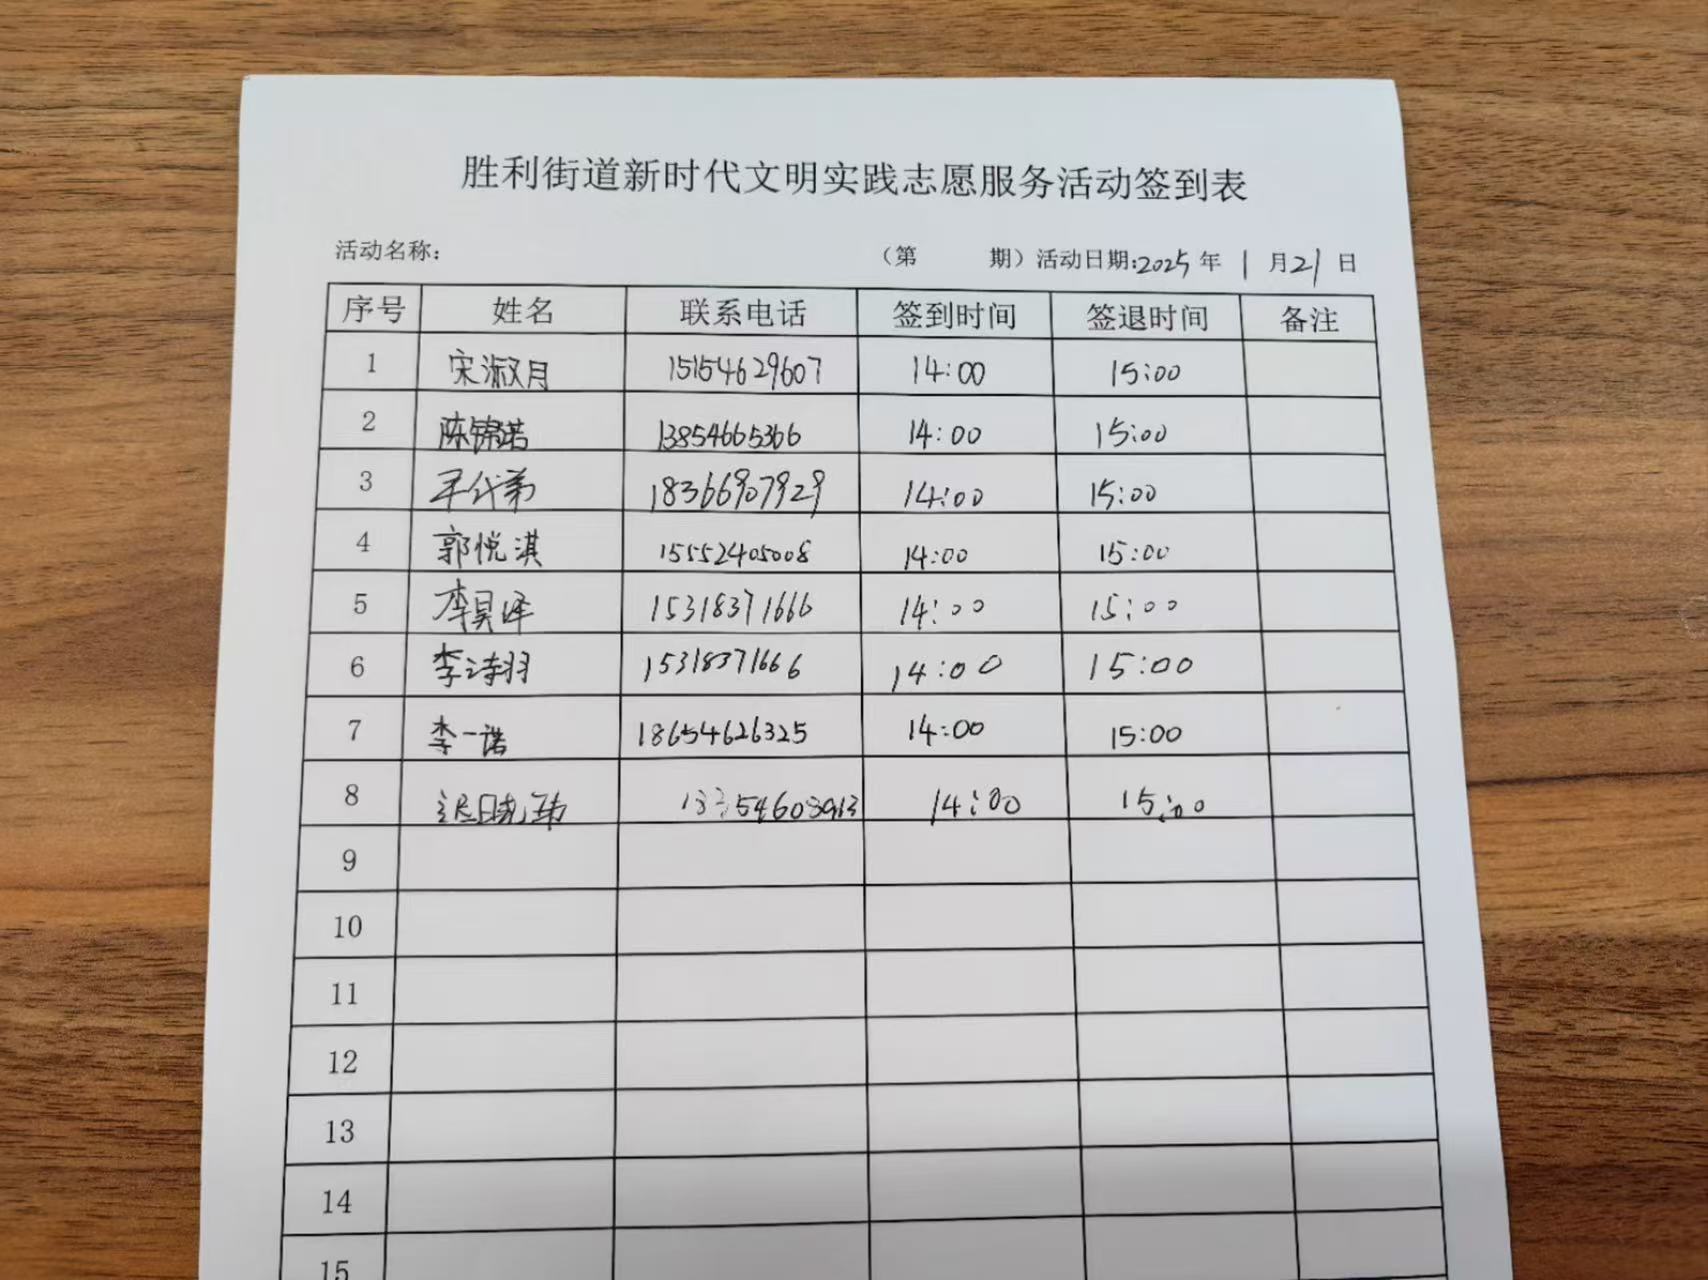 胜利街道新时代文明实践志愿服务活动签到表
活动名称： （第 期）活动日期:2025年 1 月21 日
序号 姓名 联系电话 签到时间 签退时间 备注
1 宋淑月 15154629607 14:00 15:00
2 陈锦诺 13854665366 14:00 15:00
3 代弟 18366907929 14:00 15:00
4 郭悦淇 15552405008 14:00 15:00
5 李昊泽 15318371666 14:00 15:00
6 李诗羽 15318371666 14:00 15:00
7 李一诺 18654626325 14:00 15:00
8 迟晓玮 14:00 15:00
9
10
11
12
13
14
15